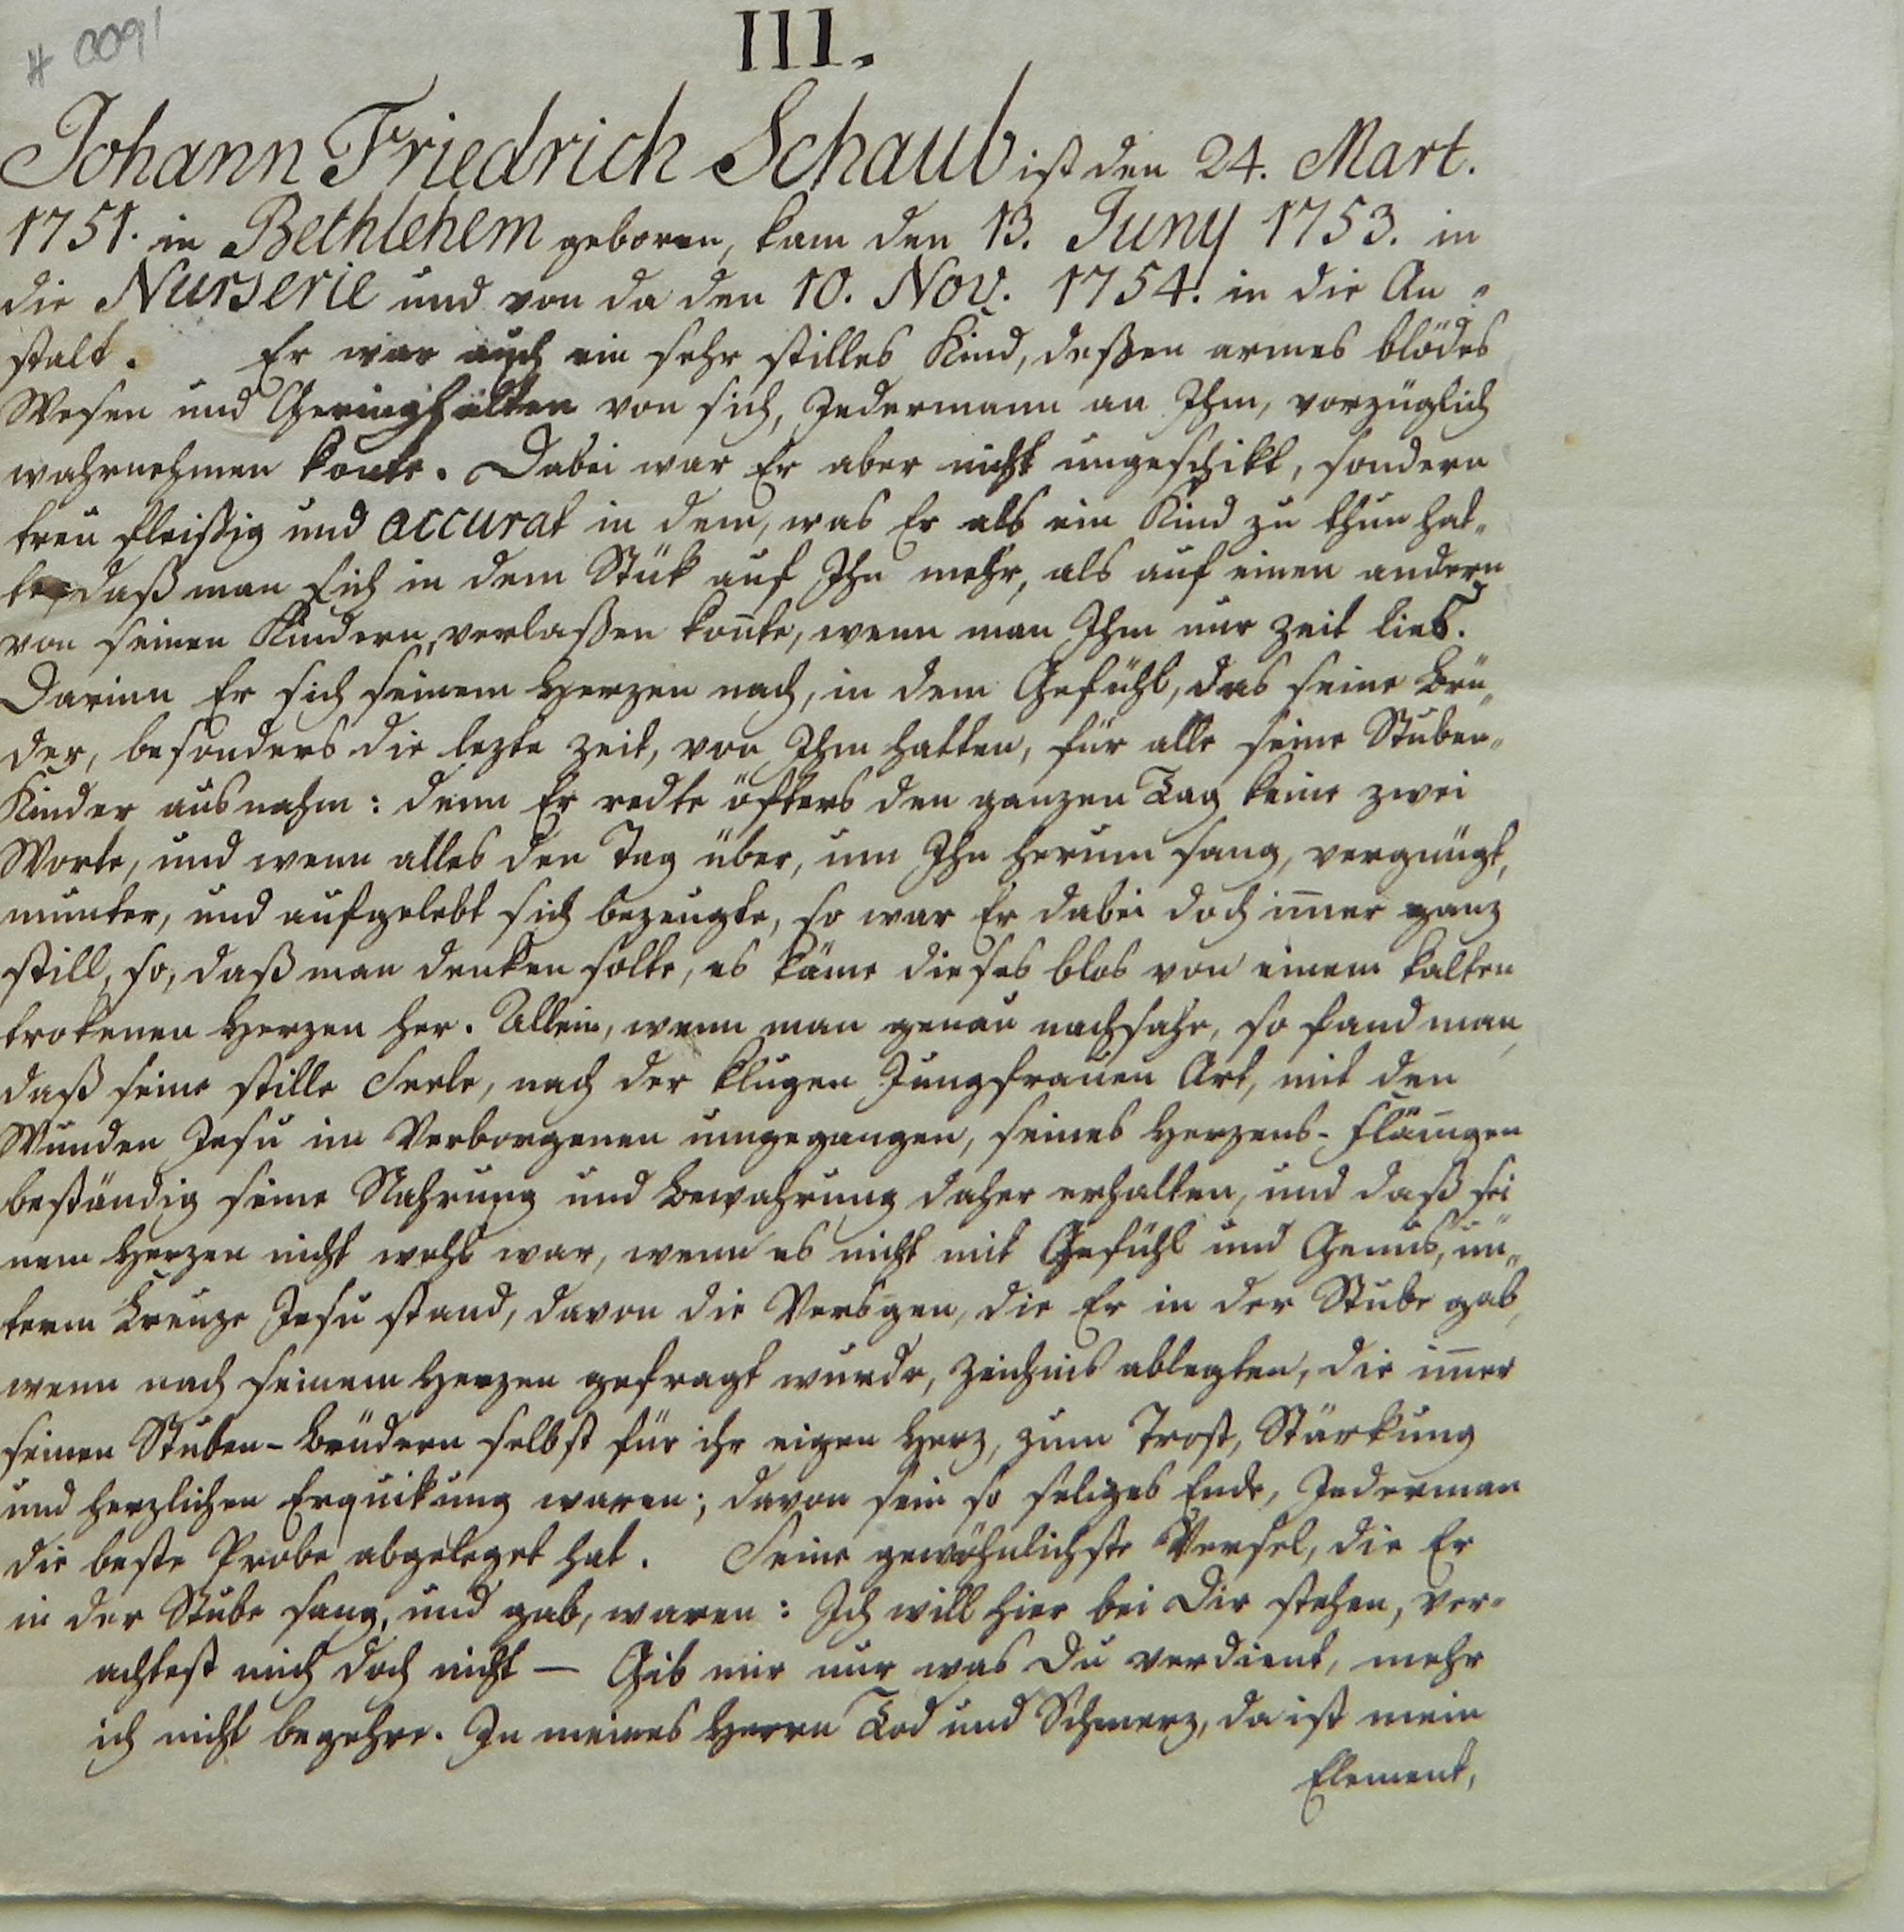 # 0091
III.
Johann Friedrich Schaub ist den 24. Mart.
1751. in Bethlehem geboren, kam den 13. Juny 1753. in
die Nurserie und von da den 10. Nov. 1754. in die An-
stalt. Er war auch ein sehr stilles Kind, deßen armes blödes
Wesen und Geringhalten von sich, Jedermann an Ihm, vorzüglich
wahrnehmen konte. Dabei war Er aber nicht ungeschikt, sondern
treu fleißig und accurat in dem, was Er als ein Kind zu thun hat-
te, daß man sich in dem Stük auf Ihn mehr, als auf einen andern
von seinen Kindern, verlaßen kon̄te, wenn man Ihm nur Zeit lies.
Darinn Er sich seinem Herzen nach, in dem Gefühl, das seine Brü-
der, besonders die lezte Zeit, von Ihm hatten, für alle seine Stuben-
Kinder ausnahm: denn Er redte öfters den ganzen Tag keine zwei
Worte, und wenn alles den Tag über, um Ihn herum sang, vergnügt,
munter, und aufgelebt sich bezeugte, so war Er dabei doch im̄er ganz
still, so, daß man denken solte, es käme dieses blos von einem kalten
trokenen Herzen her. Allein, wenn man genau nachsahe, so fand man,
daß seine stille Seele, nach der klugen Jungfrauen Art, mit den
Wunden Jesu im Verborgenen umgegangen, seines Herzens-Fläm̄gen
beständig seine Nahrung und Bewahrung daher erhalten, und daß sei-
nem Herzen nicht wohl war, wenn es nicht mit Gefühl und Genus, un-
term Creuze Jesu stand, davon die Versgen, die Er in der Stube gab,
wenn nach seinem Herzen gefragt wurde, Zeichnis ablegten, die im̄er
seinen Stuben-Brüdern selbst für ihr eigen Herz, zum Trost, Stärkung
und herzlichen Erquikung waren; davon sein so seliges Ende, Jederman
die beste Probe abgeleget hat. Seine gewöhnlichste Versel, die Er
in der Stube sang, und gab, waren: Ich will hier bei Dir stehen, ver-
achtest mich doch nicht — Gib mir nur was Du verdient, mehr
ich nicht begehre. In meines Herrn Tod und Schmerz, da ist mein
Element,